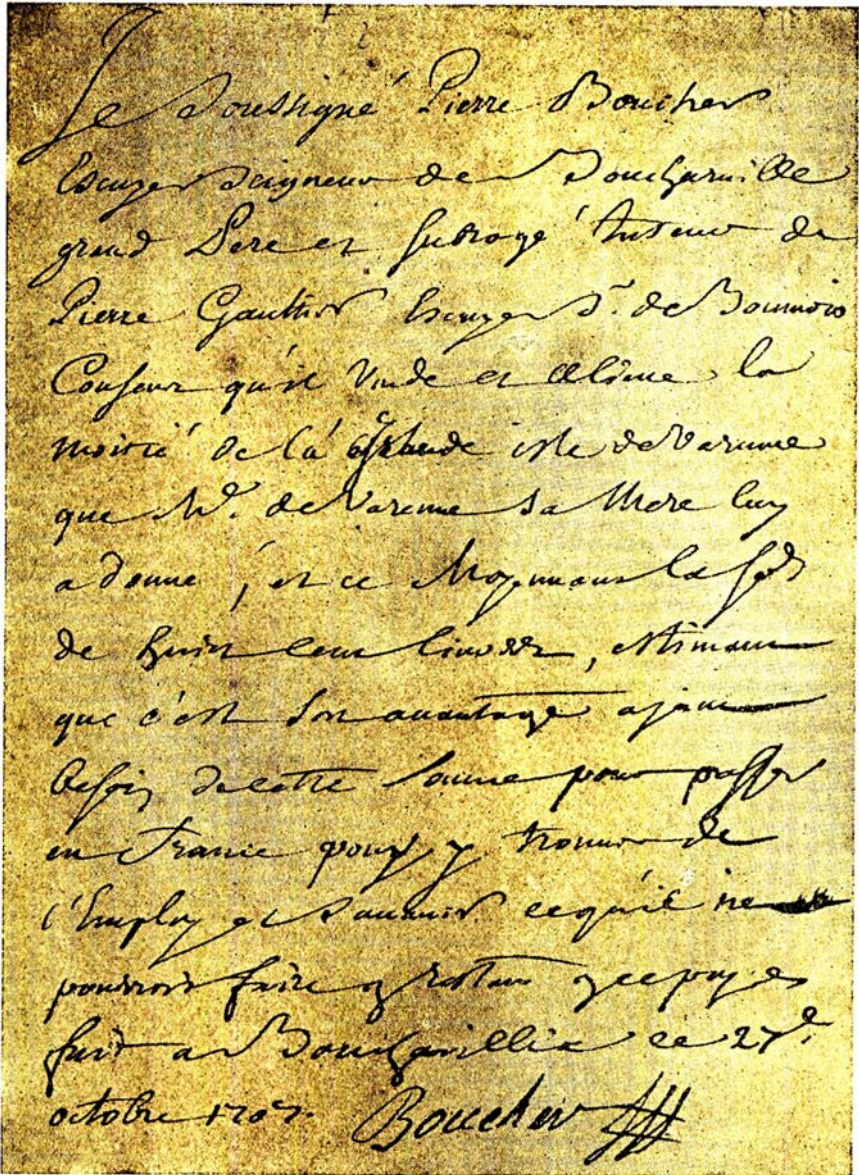 Je Soussigné Pierre Boucher
Escuyer Seigneur de Boucherville
grand Pere et subrogé Tuteur de
Pierre Gautier Escuyer Sr. de Boumois
Consens qu'il Vende et Aliene la
moitié de la grande isle de Varenne
que Md. de Varenne sa Mere luy
a donné, et ce Moyennant la
de huit cent livres, estimant
que c'est son avantage ajant
besoin de cette somme pour passer
en France pour y trouver de
l'Employ et ce qu'il ne
pourroit faire en restant en ce pays
fait a Boucherville ce 27e.
octobre 1707. Boucher